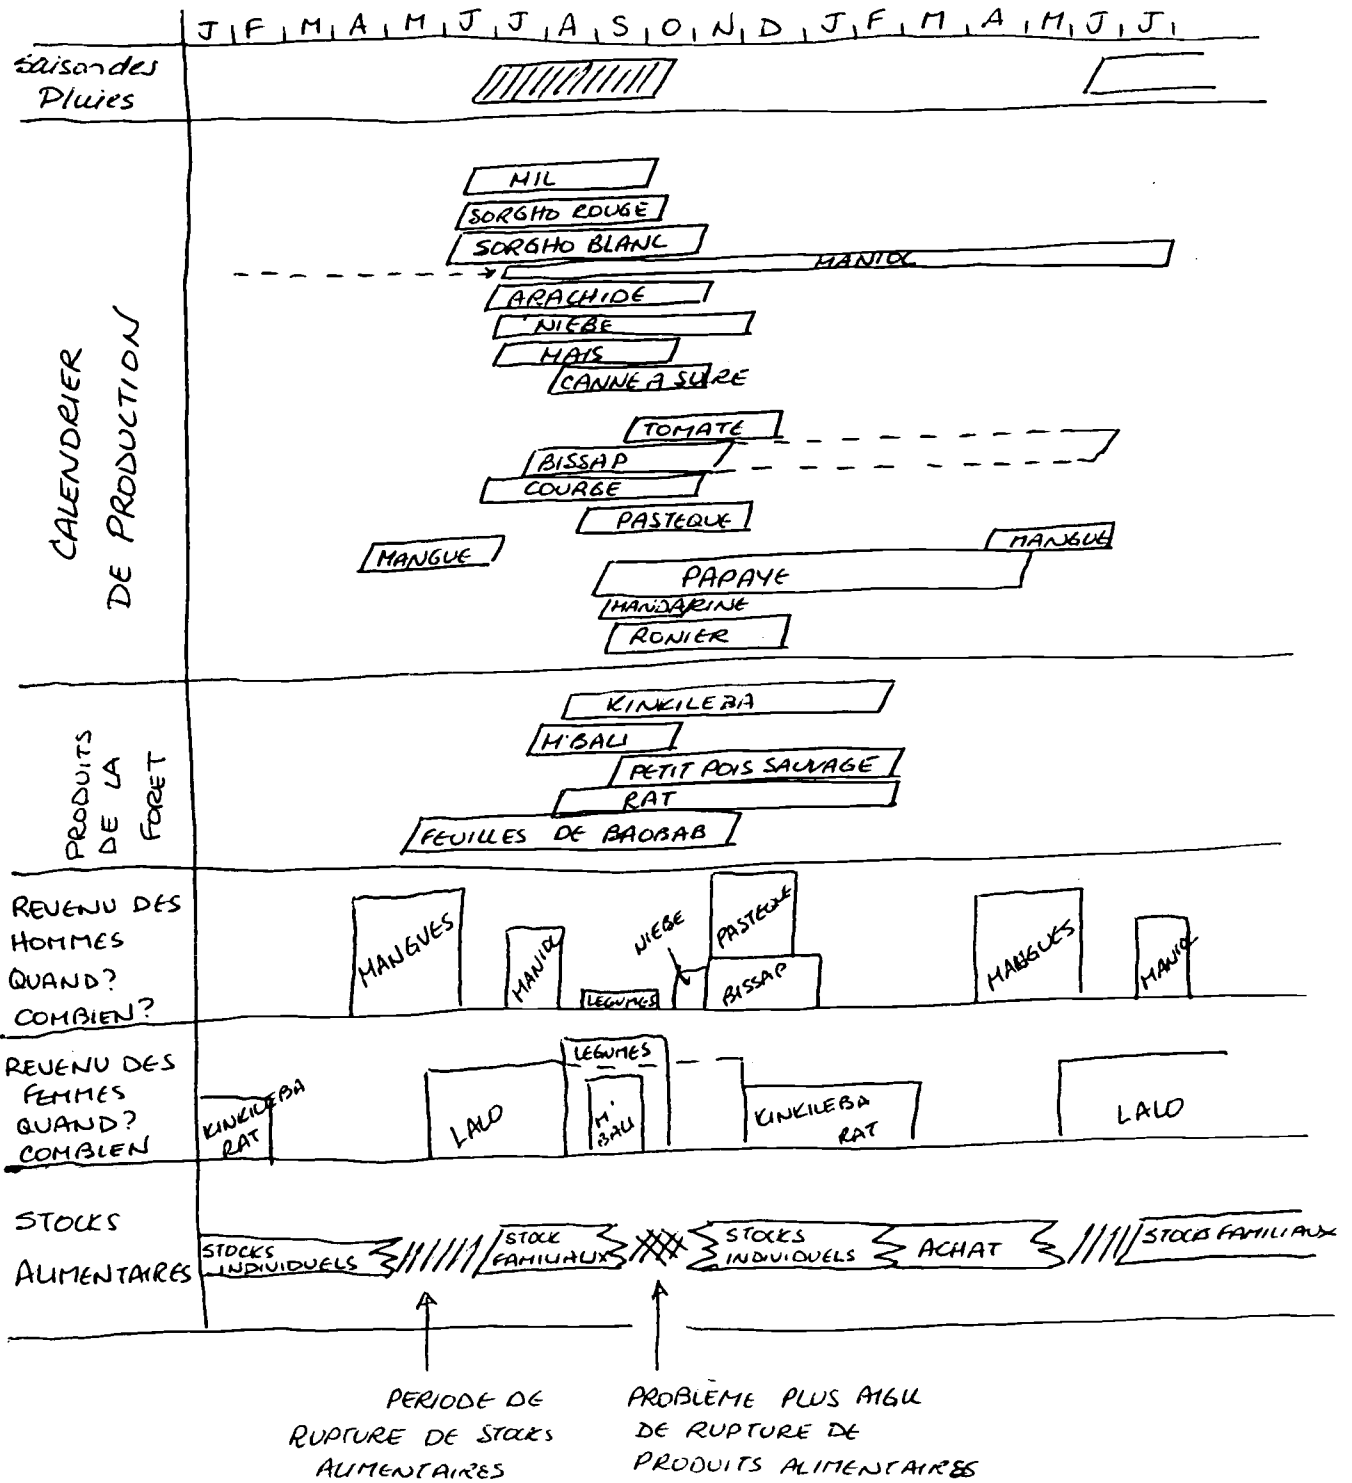 J F M A M J J A S O N D J F M A M J J
Saison des
Pluies
CALENDRIER
DE PRODUCTION
MIL
SORGHO ROUGE
SORGHO BLANC
MANIOC
ARACHIDE
NIEBE
MAIS
CANNE A SURE
TOMATE
BISSAP
COURGE
PASTEQUE
MANGUE
MANGUE
PAPAYE
MANDARINE
RONIER
PRODUITS
DE LA
FORET
KINKILEBA
M'BALI
PETIT POIS SAUVAGE
RAT
FEUILLES DE BAOBAB
REVENU DES
HOMMES
QUAND?
COMBIEN?
MANGUES
MANIOC
LEGUMES
NIEBE
PASTEQUE
BISSAP
MANGUES
MANIOC
REVENU DES
FEMMES
QUAND?
COMBIEN
KINKILEBA
RAT
LALO
LEGUMES
M'
BALI
KINKILEBA
RAT
LALO
STOCKS
ALIMENTAIRES
STOCKS
INDIVIDUELS
STOCK
FAMILIAUX
STOCKS
INDIVIDUELS
ACHAT
STOCKS FAMILIAUX
PERIODE DE
RUPTURE DE STOCKS
ALIMENTAIRES
PROBLÈME PLUS AIGU
DE RUPTURE DE
PRODUITS ALIMENTAIRES